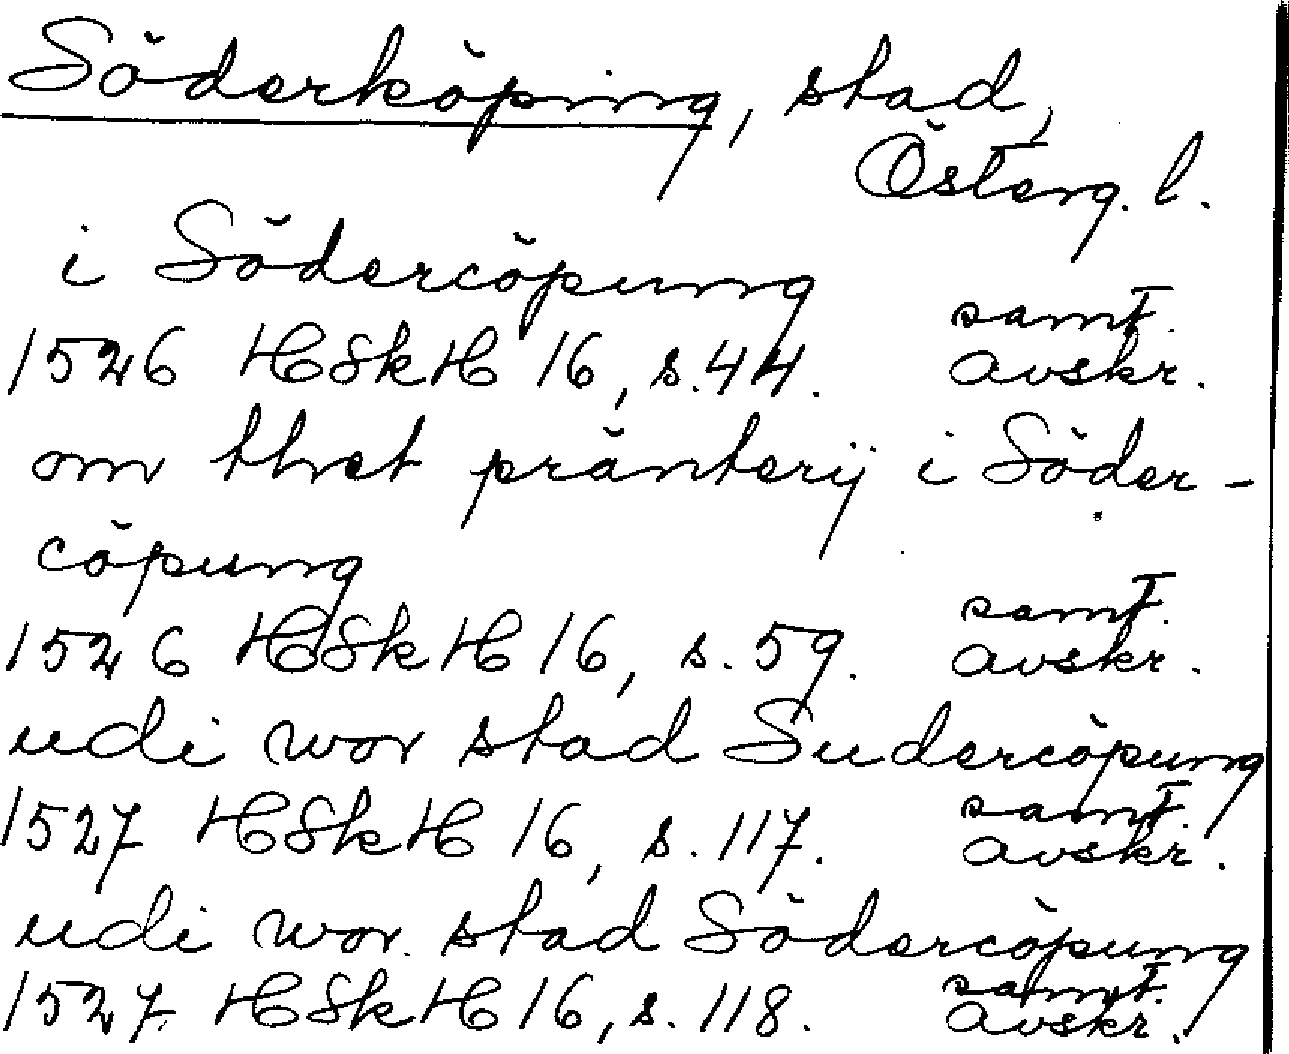 Söderköping, stad,
Österg. l.
i Södercöpung
1526 HSkH 16, s. 44. samt. avskr.
om thet pränterij i Söder-
cöpung
1526 HSkH 16, s. 59. samt. avskr.
udi wor stad Sudercöpung
1527 HSkH 16, s. 117. samt. avskr.
udi wor stad Södercöpung
1527 HSkH 16, s. 118. samt. avskr.